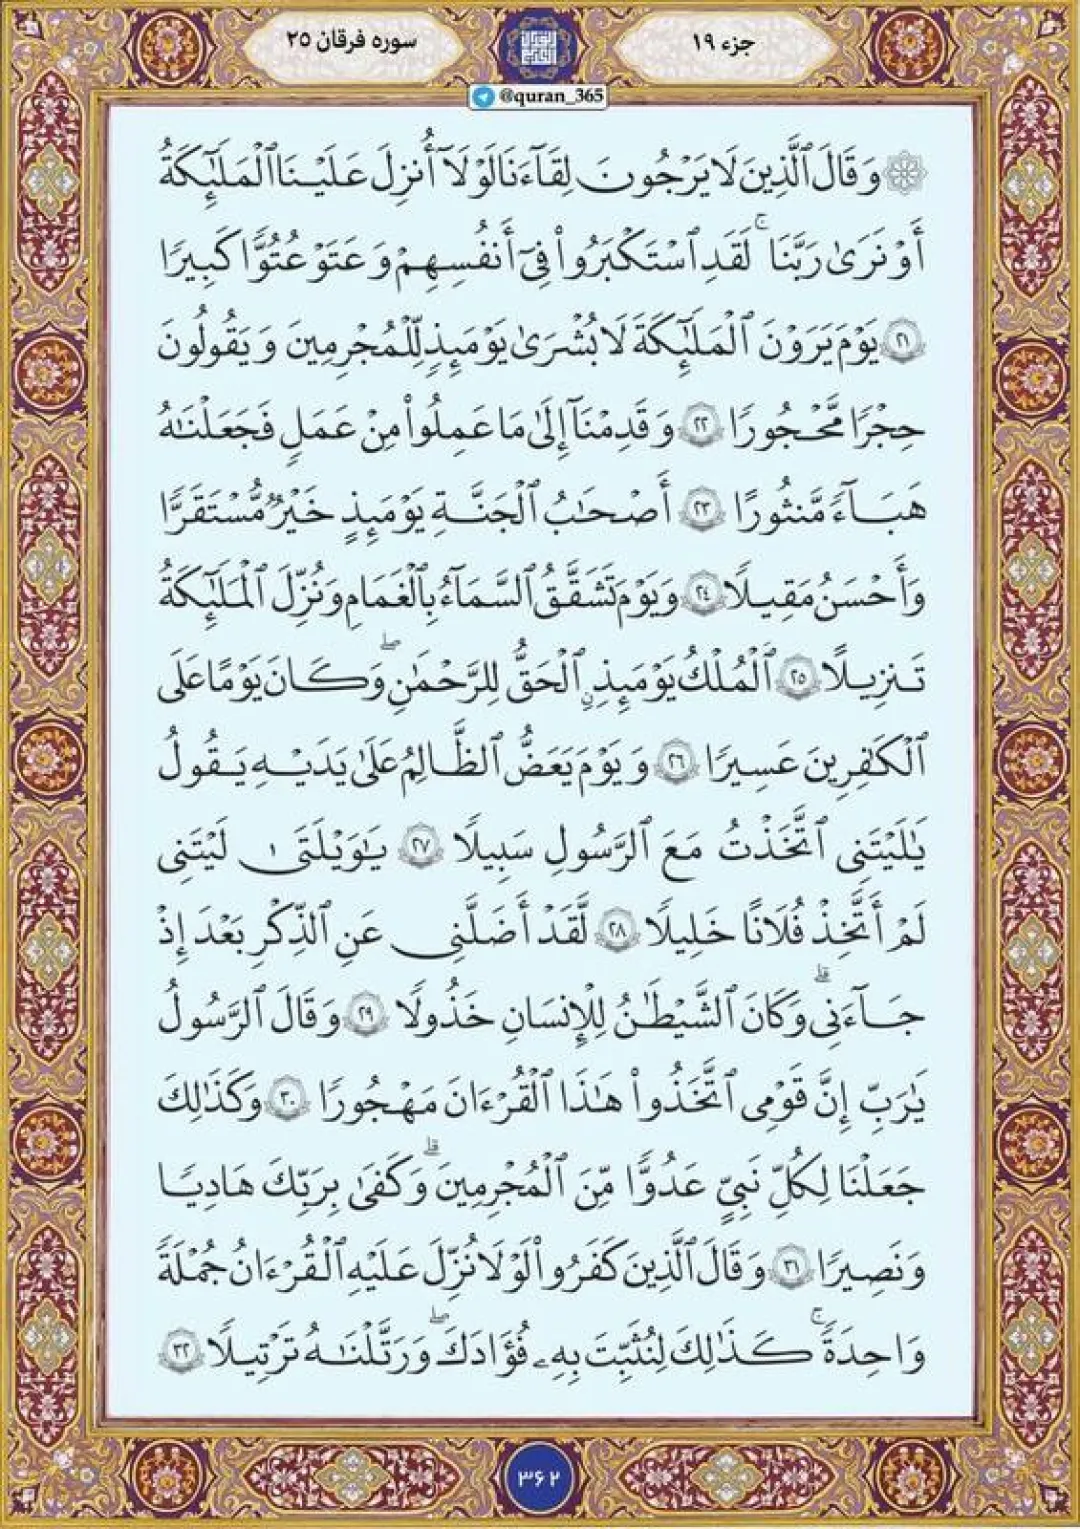 سوره فرقان ۲۵
جزء ۱۹
@quran_365
وَقَالَ ٱلَّذِينَ لَا يَرْجُونَ لِقَآءَنَا لَوْلَآ أُنزِلَ عَلَيْنَا ٱلْمَلَٰٓئِكَةُ
أَوْ نَرَىٰ رَبَّنَا ۗ لَقَدِ ٱسْتَكْبَرُوا۟ فِىٓ أَنفُسِهِمْ وَعَتَوْ عُتُوًّا كَبِيرًا
۲۱ يَوْمَ يَرَوْنَ ٱلْمَلَٰٓئِكَةَ لَا بُشْرَىٰ يَوْمَئِذٍ لِّلْمُجْرِمِينَ وَيَقُولُونَ
حِجْرًا مَّحْجُورًا ۲۲ وَقَدِمْنَآ إِلَىٰ مَا عَمِلُوا۟ مِنْ عَمَلٍ فَجَعَلْنَٰهُ
هَبَآءً مَّنثُورًا ۲۳ أَصْحَٰبُ ٱلْجَنَّةِ يَوْمَئِذٍ خَيْرٌ مُّسْتَقَرًّا
وَأَحْسَنُ مَقِيلًا ۲۴ وَيَوْمَ تَشَقَّقُ ٱلسَّمَآءُ بِٱلْغَمَٰمِ وَنُزِّلَ ٱلْمَلَٰٓئِكَةُ
تَنزِيلًا ۲۵ ٱلْمُلْكُ يَوْمَئِذٍ ٱلْحَقُّ لِلرَّحْمَٰنِ ۖ وَكَانَ يَوْمًا عَلَى
ٱلْكَٰفِرِينَ عَسِيرًا ۲۶ وَيَوْمَ يَعَضُّ ٱلظَّالِمُ عَلَىٰ يَدَيْهِ يَقُولُ
يَٰلَيْتَنِى ٱتَّخَذْتُ مَعَ ٱلرَّسُولِ سَبِيلًا ۲۷ يَٰوَيْلَتَىٰ لَيْتَنِى
لَمْ أَتَّخِذْ فُلَانًا خَلِيلًا ۲۸ لَّقَدْ أَضَلَّنِى عَنِ ٱلذِّكْرِ بَعْدَ إِذْ
جَآءَنِى ۗ وَكَانَ ٱلشَّيْطَٰنُ لِلْإِنسَٰنِ خَذُولًا ۲۹ وَقَالَ ٱلرَّسُولُ
يَٰرَبِّ إِنَّ قَوْمِى ٱتَّخَذُوا۟ هَٰذَا ٱلْقُرْءَانَ مَهْجُورًا ۳۰ وَكَذَٰلِكَ
جَعَلْنَا لِكُلِّ نَبِىٍّ عَدُوًّا مِّنَ ٱلْمُجْرِمِينَ ۗ وَكَفَىٰ بِرَبِّكَ هَادِيًا
وَنَصِيرًا ۳۱ وَقَالَ ٱلَّذِينَ كَفَرُوا۟ لَوْلَا نُزِّلَ عَلَيْهِ ٱلْقُرْءَانُ جُمْلَةً
وَٰحِدَةً ۚ كَذَٰلِكَ لِنُثَبِّتَ بِهِۦ فُؤَادَكَ ۖ وَرَتَّلْنَٰهُ تَرْتِيلًا ۳۲
۳۶۲